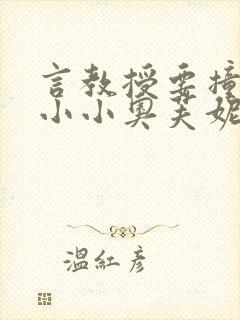 言教授要撞
小小奥芙妮
温紅彦